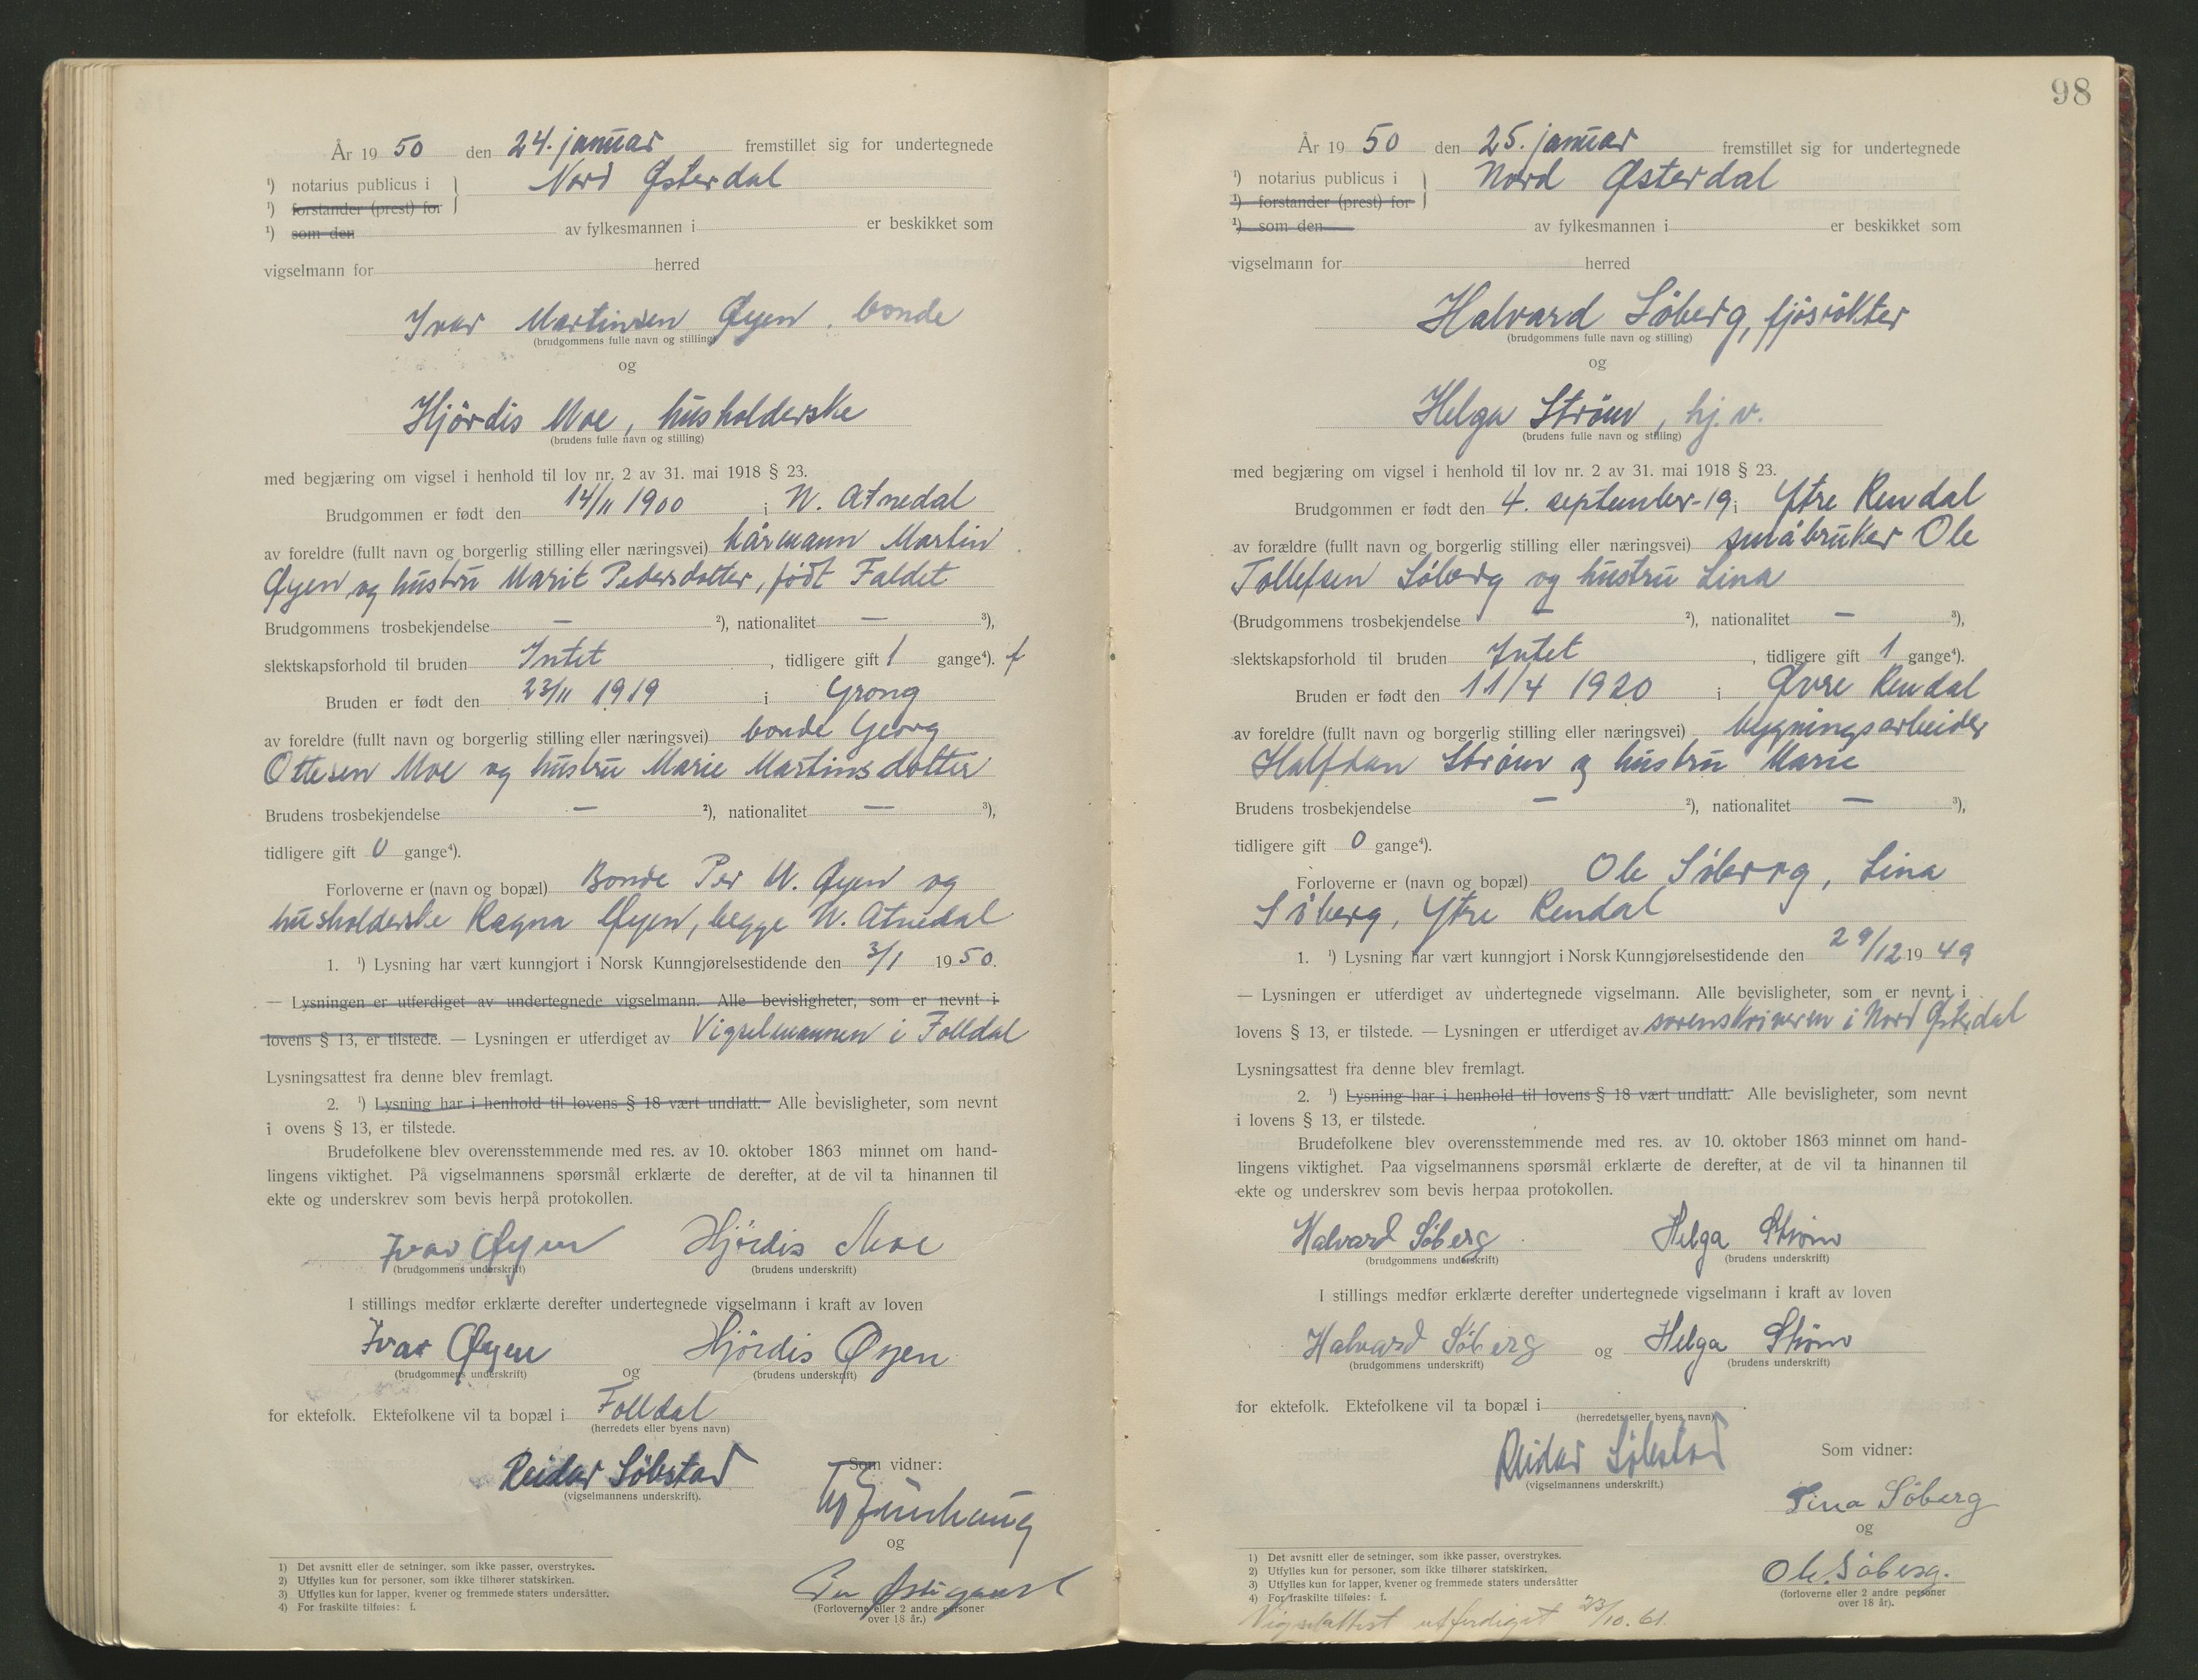 År 19 50 den 24. januar fremstillet sig for undertegnede
¹) notarius publicus i Nord Østerdal
¹) forstander (prest) for
¹) som den av fylkesmannen i er beskikket som
vigselmann for herred
Ivar Martinsen Øyen, bonde
(brudgommens fulle navn og stilling)
og
Hjördis Moe, husholderske
(brudens fulle navn og stilling)
med begjæring om vigsel i henhold til lov nr. 2 av 31. mai 1918 § 23.
Brudgommen er født den 14/11 1900 i N. Atnedal
av foreldre (fullt navn og borgerlig stilling eller næringsvei) kårmann Martin
Øyen og hustru Marit Pedersdotter, født Faldet
Brudgommens trosbekjendelse — ²), nationalitet — ³),
slektskapsforhold til bruden Intet, tidligere gift 1 gange⁴). f
Bruden er født den 23/11 1919 i Grong
av foreldre (fullt navn og borgerlig stilling eller næringsvei) bonde Georg
Ottesen Moe og hustru Marie Martinsdotter
Brudens trosbekjendelse — ²), nationalitet — ³),
tidligere gift 0 gange⁴).
Forloverne er (navn og bopæl) Bonde Per M. Øyen og
husholderske Ragna Øyen, begge N. Atnedal
1. ¹) Lysning har vært kunngjort i Norsk Kunngjørelsestidende den 3/1 1950.
— Lysningen er utferdiget av undertegnede vigselmann. Alle bevisligheter, som er nevnt i
lovens § 13, er tilstede. — Lysningen er utferdiget av Vigselmannen i Folldal
Lysningsattest fra denne blev fremlagt.
2. ¹) Lysning har i henhold til lovens § 18 vært undlatt. Alle bevisligheter, som nevnt
i ovens § 13, er tilstede.
Brudefolkene blev overensstemmende med res. av 10. oktober 1863 minnet om hand-
lingens viktighet. På vigselmannens spørsmål erklærte de derefter, at de vil ta hinannen til
ekte og underskrev som bevis herpå protokollen.
Ivar Øyen Hjördis Moe
(brudgommens underskrift) (brudens underskrift)
I stillings medfør erklærte derefter undertegnede vigselmann i kraft av loven
Ivar Øyen Hjördis Øyen
(brudgommens underskrift) og (brudens underskrift)
for ektefolk. Ektefolkene vil ta bopæl i Folldal
(herredets eller byens navn)
Reidar Söbstad Som vidner:
(vigselmannens underskrift).
og
(Forloverne eller 2 andre personer
over 18 år.)
1) Det avsnitt eller de setninger, som ikke passer, overstrykes.
2) Utfylles kun for personer, som ikke tilhører statskirken.
3) Utfylles kun for lapper, kvener og fremmede staters undersåtter.
4) For fraskilte tilføies: f.
98
År 19 50 den 25. januar fremstillet sig for undertegnede
¹) notarius publicus i Nord Østerdal
¹) forstander (prest) for
¹) som den av fylkesmannen i er beskikket som
vigselmann for herred
Halvard Söberg, fjösrökter
(brudgommens fulle navn og stilling)
og
Helga Ström, hj. v.
(brudens fulle navn og stilling)
med begjæring om vigsel i henhold til lov nr. 2 av 31. mai 1918 § 23.
Brudgommen er født den 4. september -19 i Ytre Rendal
av forældre (fullt navn og borgerlig stilling eller næringsvei) småbruker Ole
Tollefsen Söberg og hustru Lina
(Brudgommens trosbekjendelse — ²), nationalitet — ³),
slektskapsforhold til bruden Intet, tidligere gift 1 gange⁴).
Bruden er født den 11/4 1920 i Øvre Rendal
av foreldre (fullt navn og borgerlig stilling eller næringsvei) bygningsarbeider
Halfdan Ström og hustru Marie
Brudens trosbekjendelse — ²), nationalitet — ³),
tidligere gift 0 gange⁴).
Forloverne er (navn og bopæl) Ole Söberg, Lina
Söberg, Ytre Rendal
1. ¹) Lysning har vært kunngjort i Norsk Kunngjørelsestidende den 29/12 19 49
— Lysningen er utferdiget av undertegnede vigselmann. Alle bevisligheter, som er nevnt i
lovens § 13, er tilstede. — Lysningen er utferdiget av sorenskriveren i Nord Østerdal
Lysningsattest fra denne blev fremlagt.
2. ¹) Lysning har i henhold til lovens § 18 vært undlatt. Alle bevisligheter, som nevnt
i lovens § 13, er tilstede.
Brudefolkene blev overensstemmende med res. av 10. oktober 1863 minnet om hand-
lingens viktighet. Paa vigselmannens spørsmål erklærte de derefter, at de vil ta hinannen til
ekte og underskrev som bevis herpaa protokollen.
Halvard Söberg Helga Ström
(brudgommens underskrift) (brudens underskrift)
I stillings medfør erklærte derefter undertegnede vigselmann i kraft av loven
Halvard Söberg og Helga Ström
(brudgommens underskrift) (brudens underskrift)
for ektefolk. Ektefolkene vil ta bopæl i
(herredets eller byens navn)
Reidar Söbstad Som vidner:
(vigselmannens underskrift.)
Lina Söberg
og
Ole Söberg.
(forloverne eller 2 andre personer
over 18 år).
1) Det avsnitt eller de setninger, som ikke passer, overstrykes.
2) Utfylles kun for personer, som ikke tilhører statskirken.
3) Utfylles kun for lapper, kvener og fremmede staters undersåtter
4) For fraskilte tilføies: f.
Vigselattest utferdiget 23/10. 61.